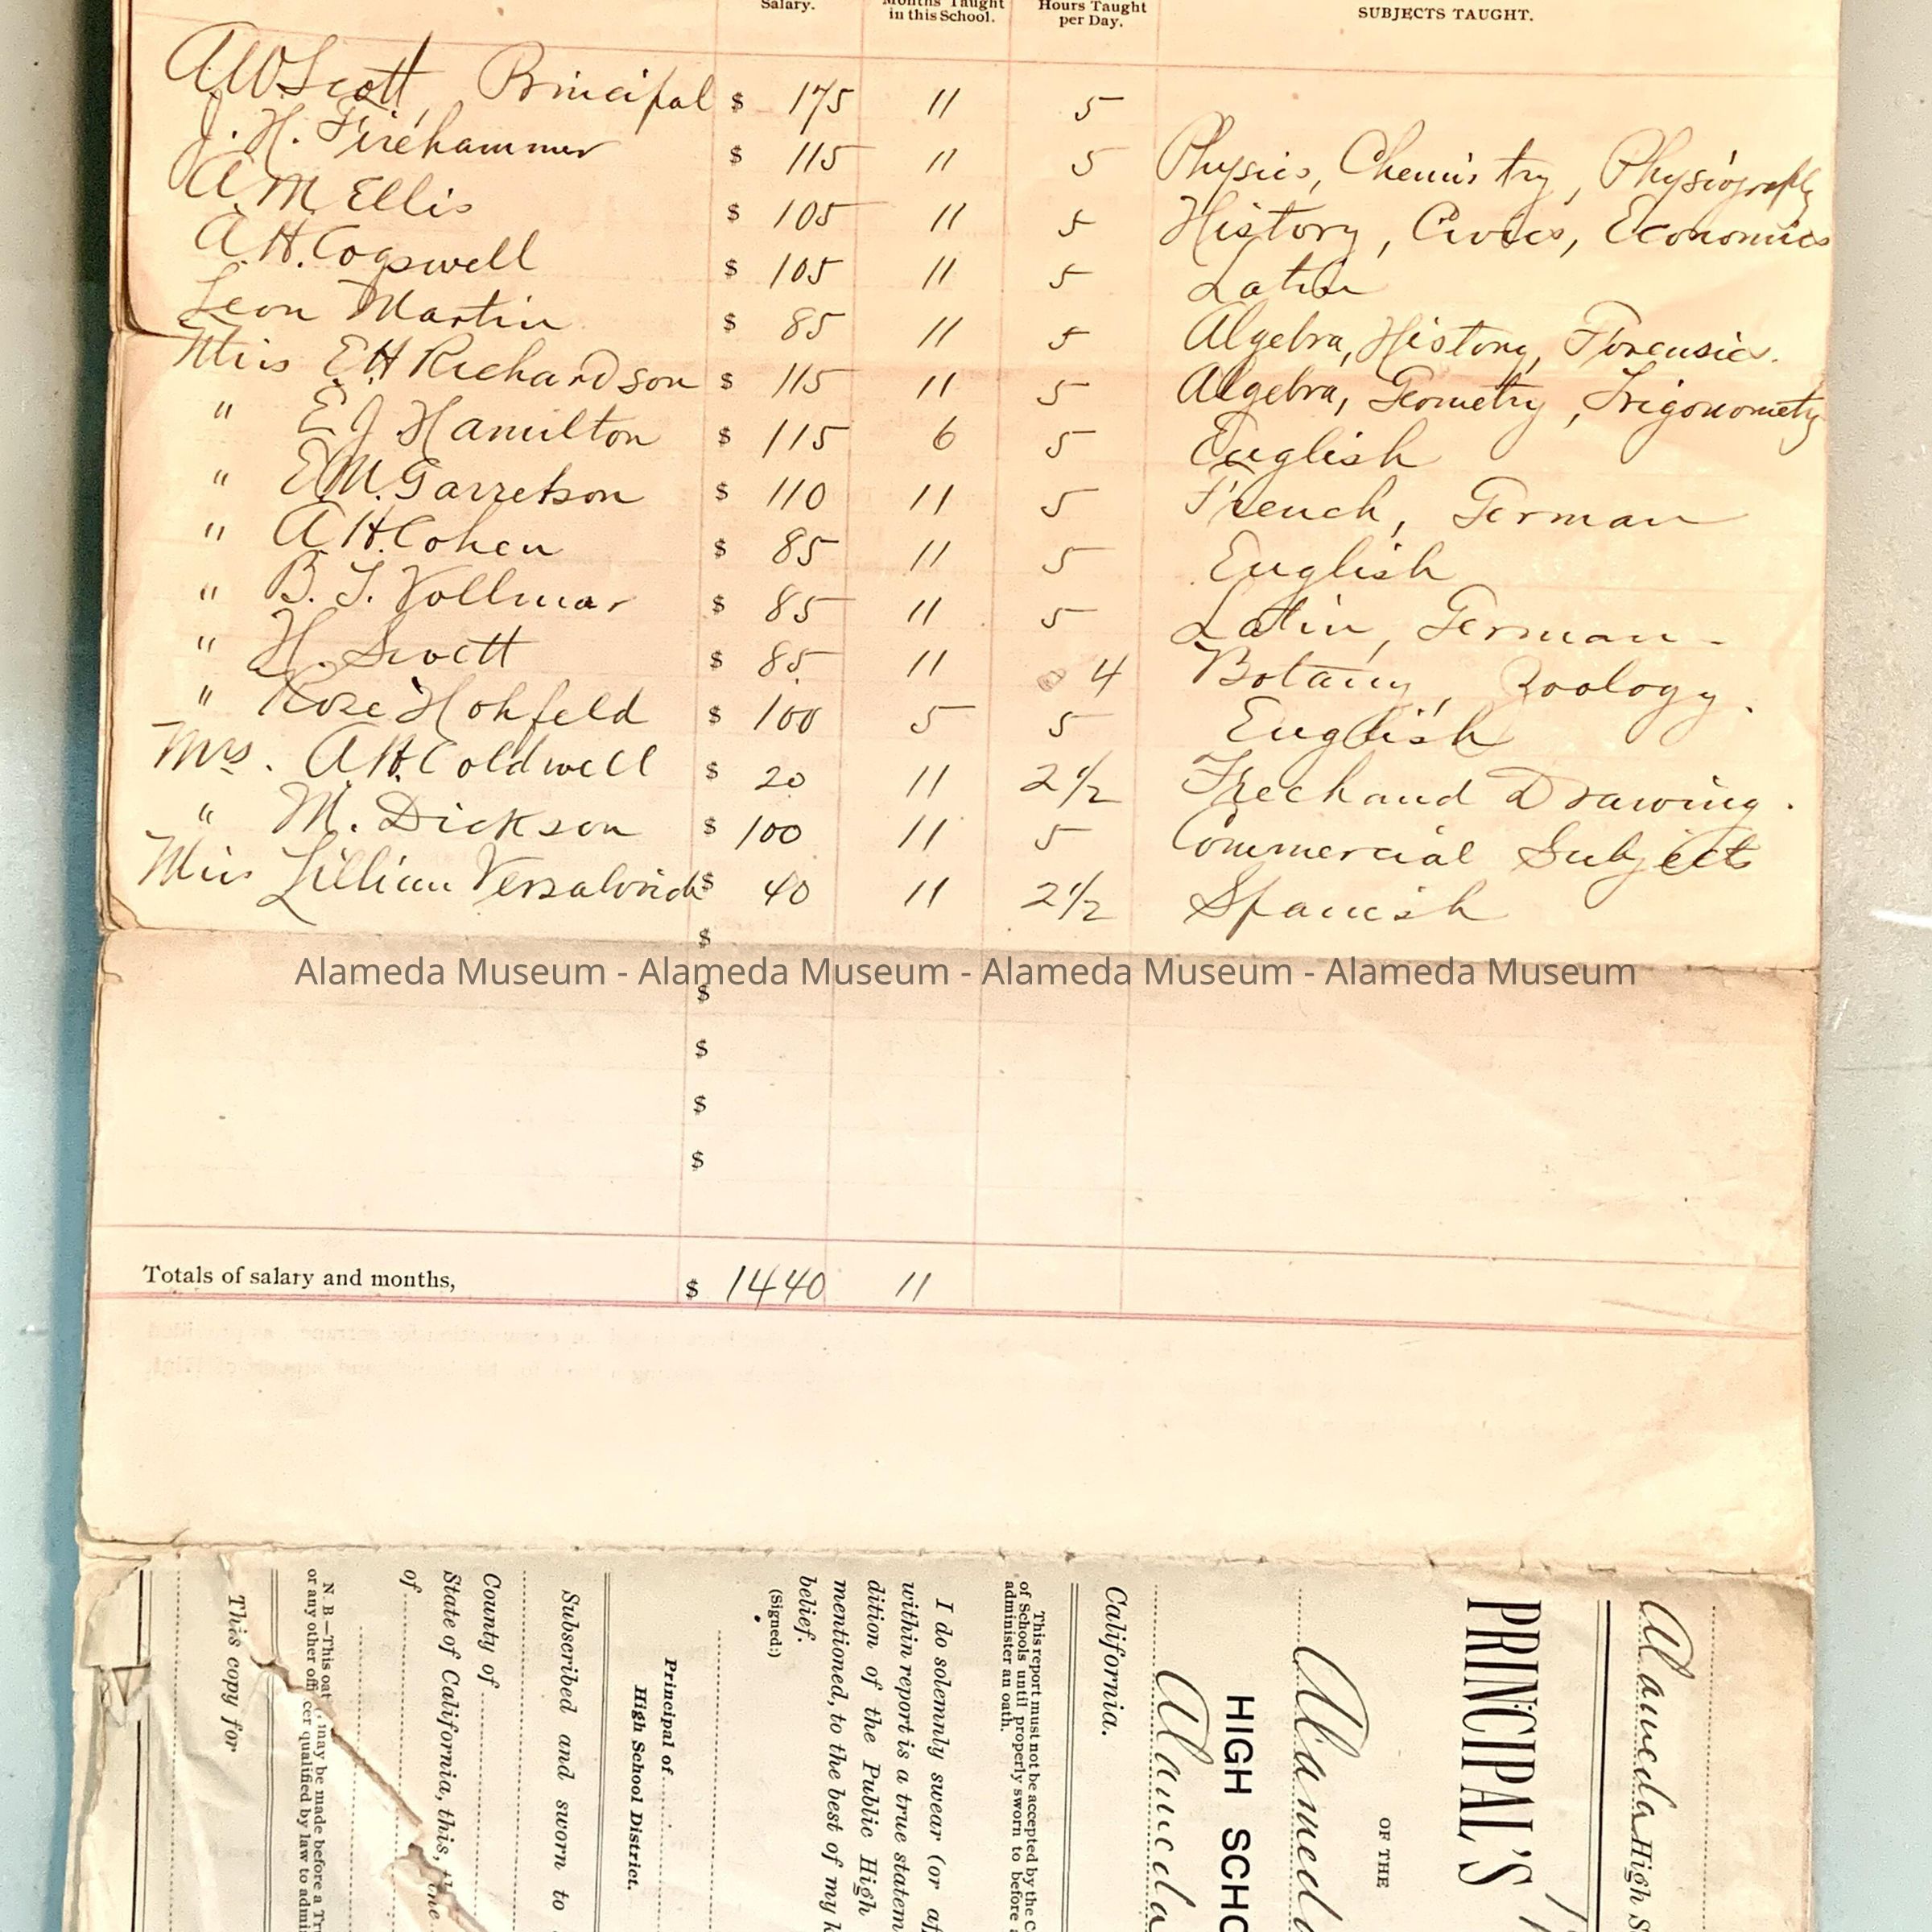 Salary.
Months Taught in this School.
Hours Taught per Day.
SUBJECTS TAUGHT.
A.W. Scott, Principal $ 175 11 5
J. H. Firehammer $ 115 11 5 Physics, Chemistry, Physiography
A. M. Ellis $ 105 11 5 History, Civics, Economics
A. H. Cogswell $ 105 11 5 Latin
Leon Martin $ 85 11 5 Algebra, History, Forensics.
Miss E. H Richardson $ 115 11 5 Algebra, Geometry, Trigonometry
" E J. Hamilton $ 115 6 5 English
" E.M. Garretson $ 110 11 5 French, German
" A. H. Cohen $ 85 11 5 English
" B. T. Vollmar $ 85 11 5 Latin, German -
" H. Swett $ 85. 11 4 Botany, Zoology.
" Rose Hohfeld $ 100 5 5 English
Mrs. A. H. Coldwell $ 20 11 2 1/2 Freehand Drawing.
" M. Dickson $ 100 11 5 Commercial Subjects
Miss Lillian $ 40 11 2 1/2 Spanish
$
Alameda Museum - Alameda Museum - Alameda Museum - Alameda Museum
$
$
$
$
Totals of salary and months, $ 1440 11
Alameda High S
PRINCIPAL'S
OF THE
Alameda
HIGH SCHO
Alameda
California.
This report must not be accepted by the C
of Schools until properly sworn to before
administer an oath.
I do solemnly swear (or af
within report is a true statem
dition of the Public High
mentioned, to the best of my k
belief.
(Signed:)
Principal of
High School District.
Subscribed and sworn to
County of
State of California, this, the
of
N. B—This oath may be made before a Tru
or any other officer qualified by law to admi
This copy for